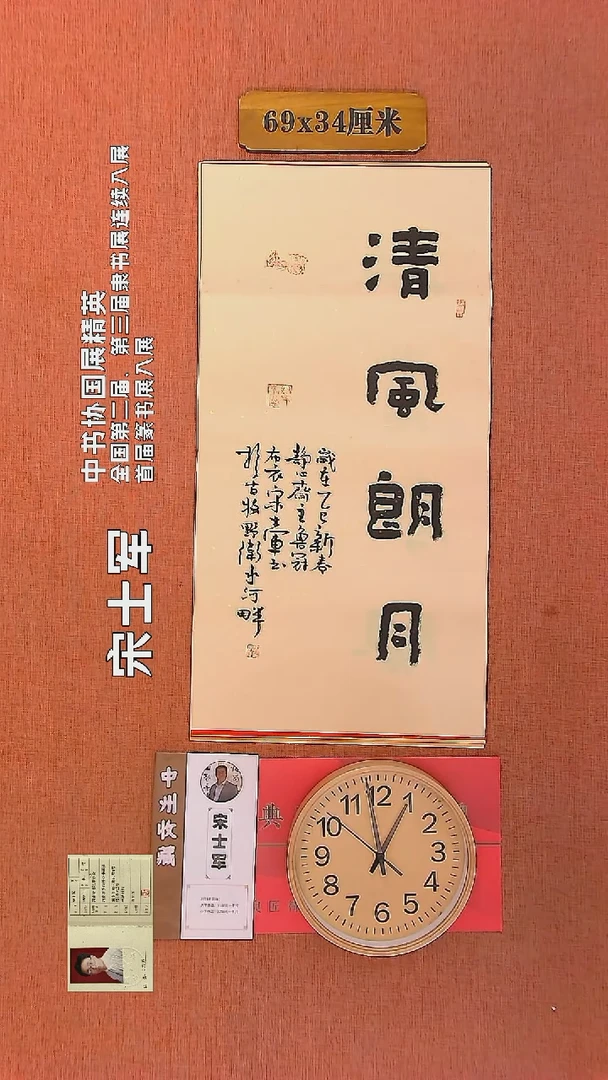 69x34厘米
清風朗月
歲在乙巳新春
静心齋主魯冠
布衣宋士軍書
於古牧野衛水河畔
中书协国展精英
全国第二届、第三届隶书展连续入展
首届篆书展入展
宋士军
宋士军
典
12
1
2
3
4
5
6
7
8
9
10
11